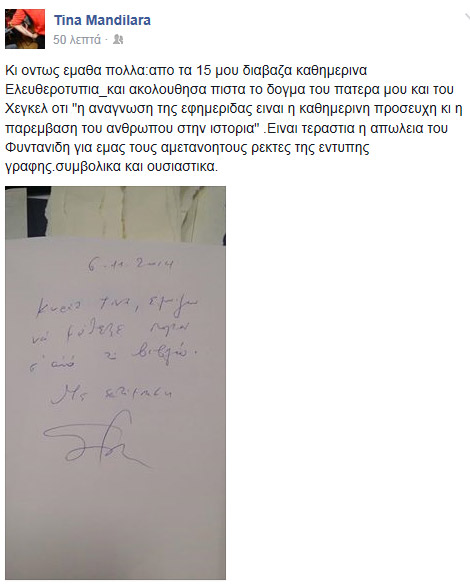 Tina Mandilara
50 λεπτά ·
Κι οντως εμαθα πολλα:απο τα 15 μου διαβαζα καθημερινα
Ελευθεροτυπια_και ακολουθησα πιστα το δογμα του πατερα μου και του
Χεγκελ οτι "η αναγνωση της εφημεριδας ειναι η καθημερινη προσευχη κι η
παρεμβαση του ανθρωπου στην ιστορια" .Ειναι τεραστια η απωλεια του
Φυντανιδη για εμας τους αμετανοητους ρεκτες της εντυπης
γραφης.συμβολικα και ουσιαστικα.
6.11.2014
κυρία Τίνα,
νά μάθετε πολλά
σ' αυτό το βιβλίο.
Με εκτίμηση